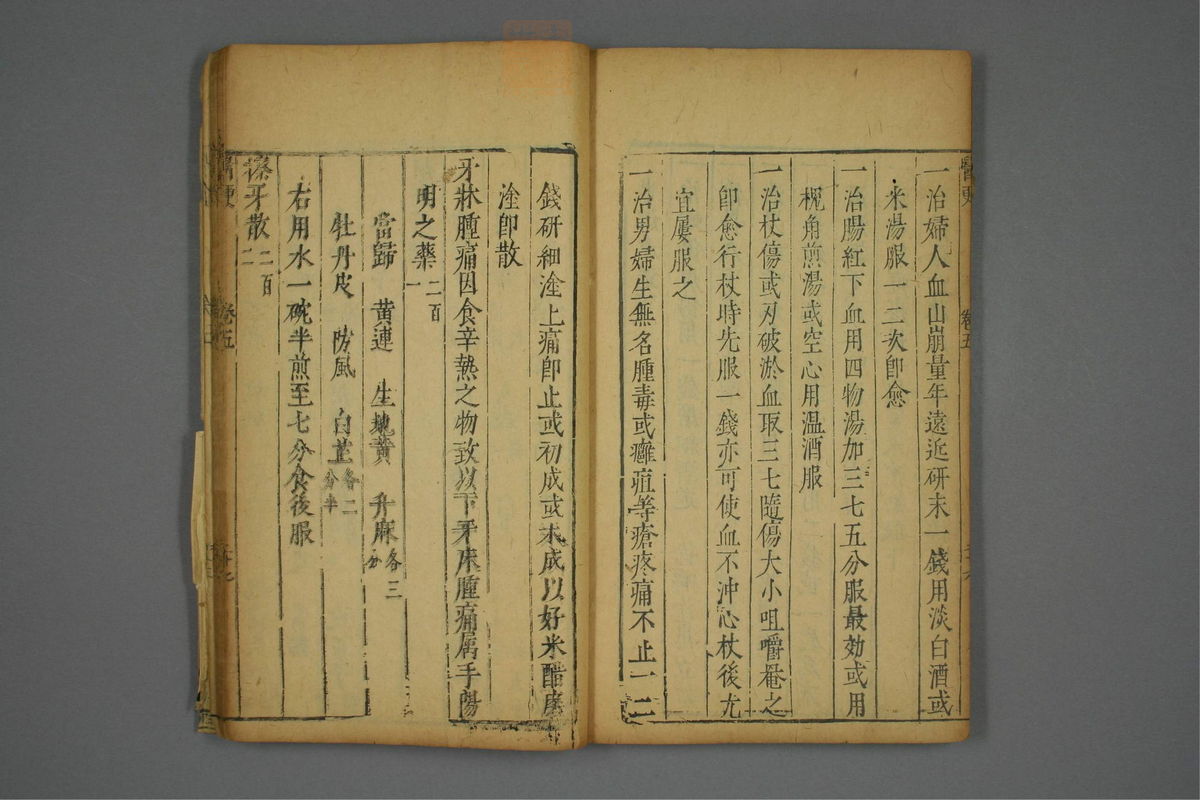 一治婦人血山崩量年遠近研末一錢用淡白酒或
米湯服一二次卽愈
一治腸紅下血用四物湯加三七五分服最効或用
槐角煎湯或空心用温酒服
一治杖傷或刃破淤血取三七隨傷大小咀嚼菴之
卽愈行杖時先服一錢亦可使血不沖心杖後尤
宜屢服之
一治男婦生無名腫毒或癰疽等瘡疼痛不止一二
錢研細塗上痛卽止或初成或未成以好米醋磨
塗卽散
牙牀腫痛因食辛熱之物致以下牙床腫痛属手陽
明之藥 二百一
當歸 黄連 生地黄 升麻各三分
牡丹皮 防風 白芷各二分半
右用水一碗半煎至七分食後服
擦牙散 二百二
醫便 卷五